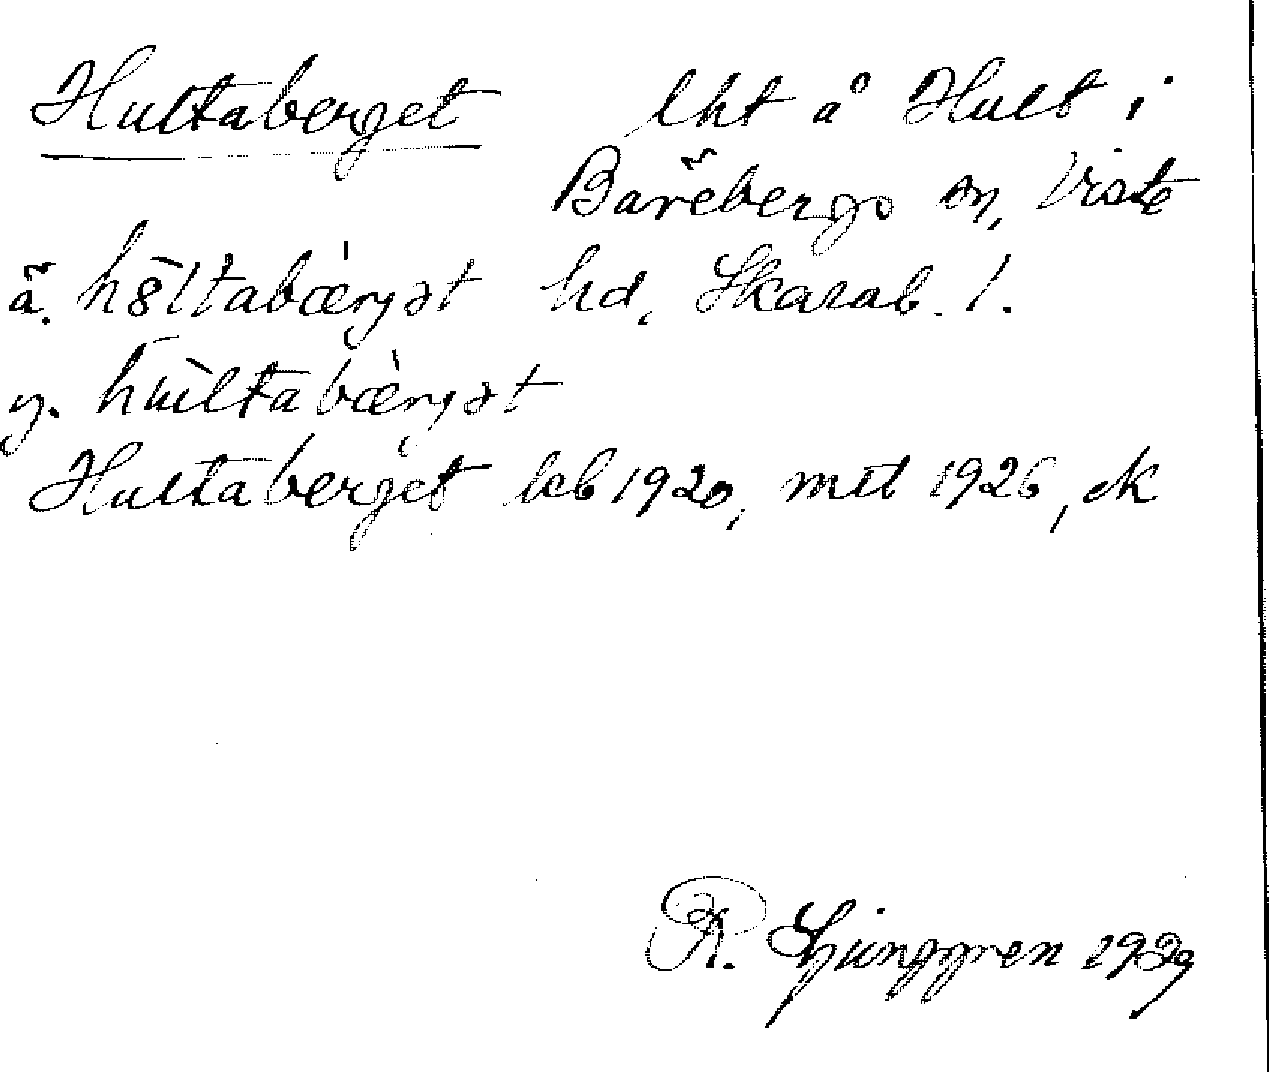 Hultaberget lht å Hult i
Barebergs sn, Viste
ä. hö̀ltabærjət hd, Skarab. l.
y. hùltabærjət
Hultaberget lcb 1920, mtl 1926, ek
R. Ljunggren 1929